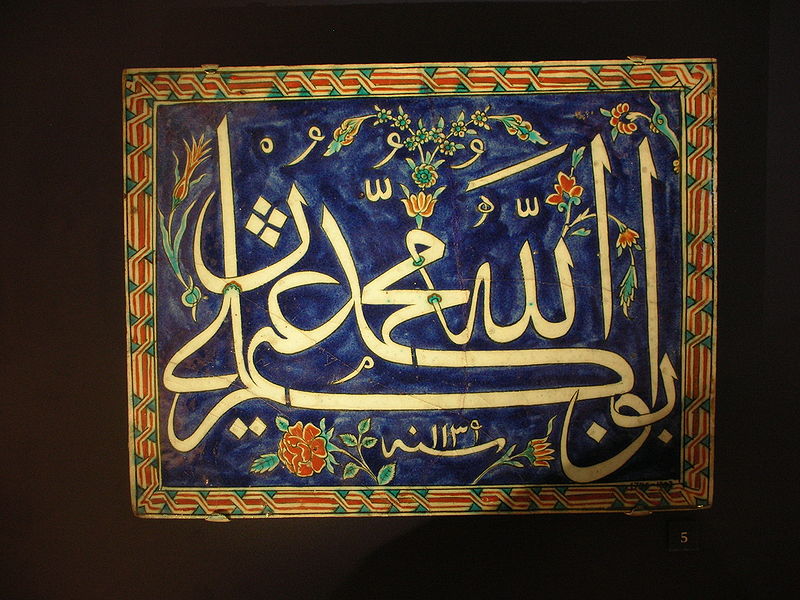 الله محمد
ابو بكر عمر عثمان علي
سنه ١١٣٩
5